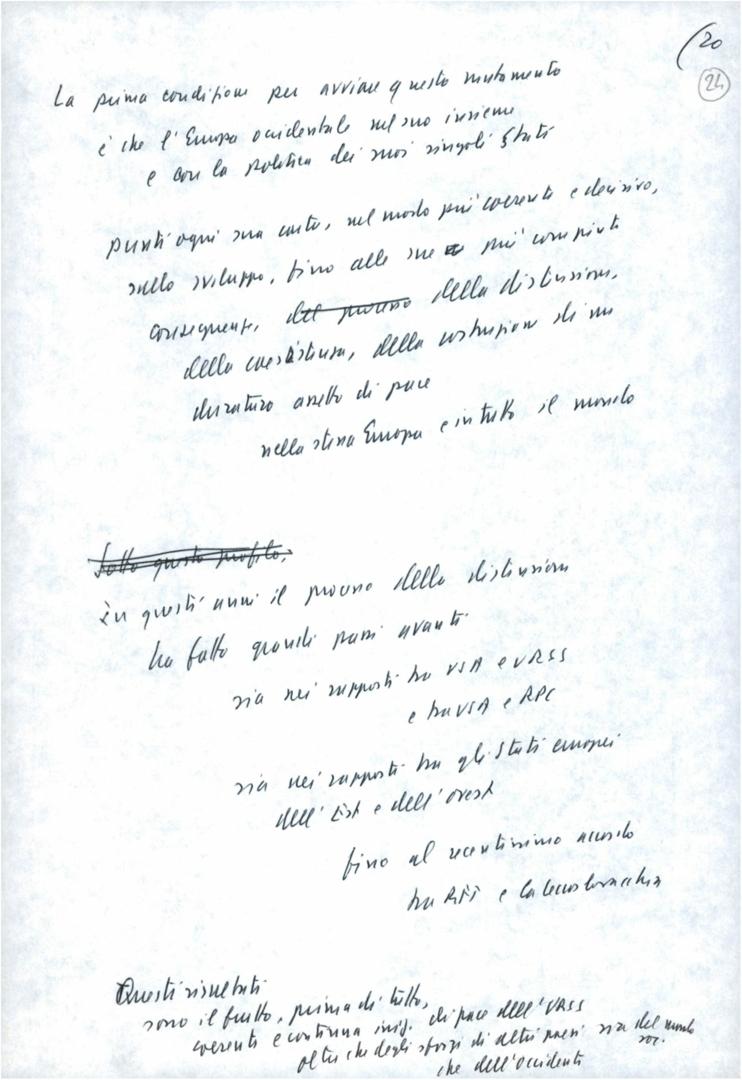 (20
24
La prima condizione per avviare questo mutamento
è che l'Europa occidentale nel suo insieme
e con la politica dei suoi singoli Stati
punti ogni sua carta, nel modo più coerente e decisivo,
sullo sviluppo, fino alle sue più compiute
conseguenze, del processo della distensione,
della coesistenza, della costruzione di un
duraturo assetto di pace
nella stessa Europa e in tutto il mondo
Sotto questo profilo,
In questi anni il processo della distensione
ha fatto grandi passi avanti
sia nei rapporti tra USA e URSS
e tra USA e RPC
sia nei rapporti tra gli Stati europei
dell'Est e dell'Ovest
fino al recentissimo accordo
tra RFT e la Cecoslovacchia
Questi risultati
sono il frutto, prima di tutto,
coerente e continua iniz. di pace dell'URSS
oltre che degli sforzi di altri paesi sia del mondo
soc.
che dell'Occidente